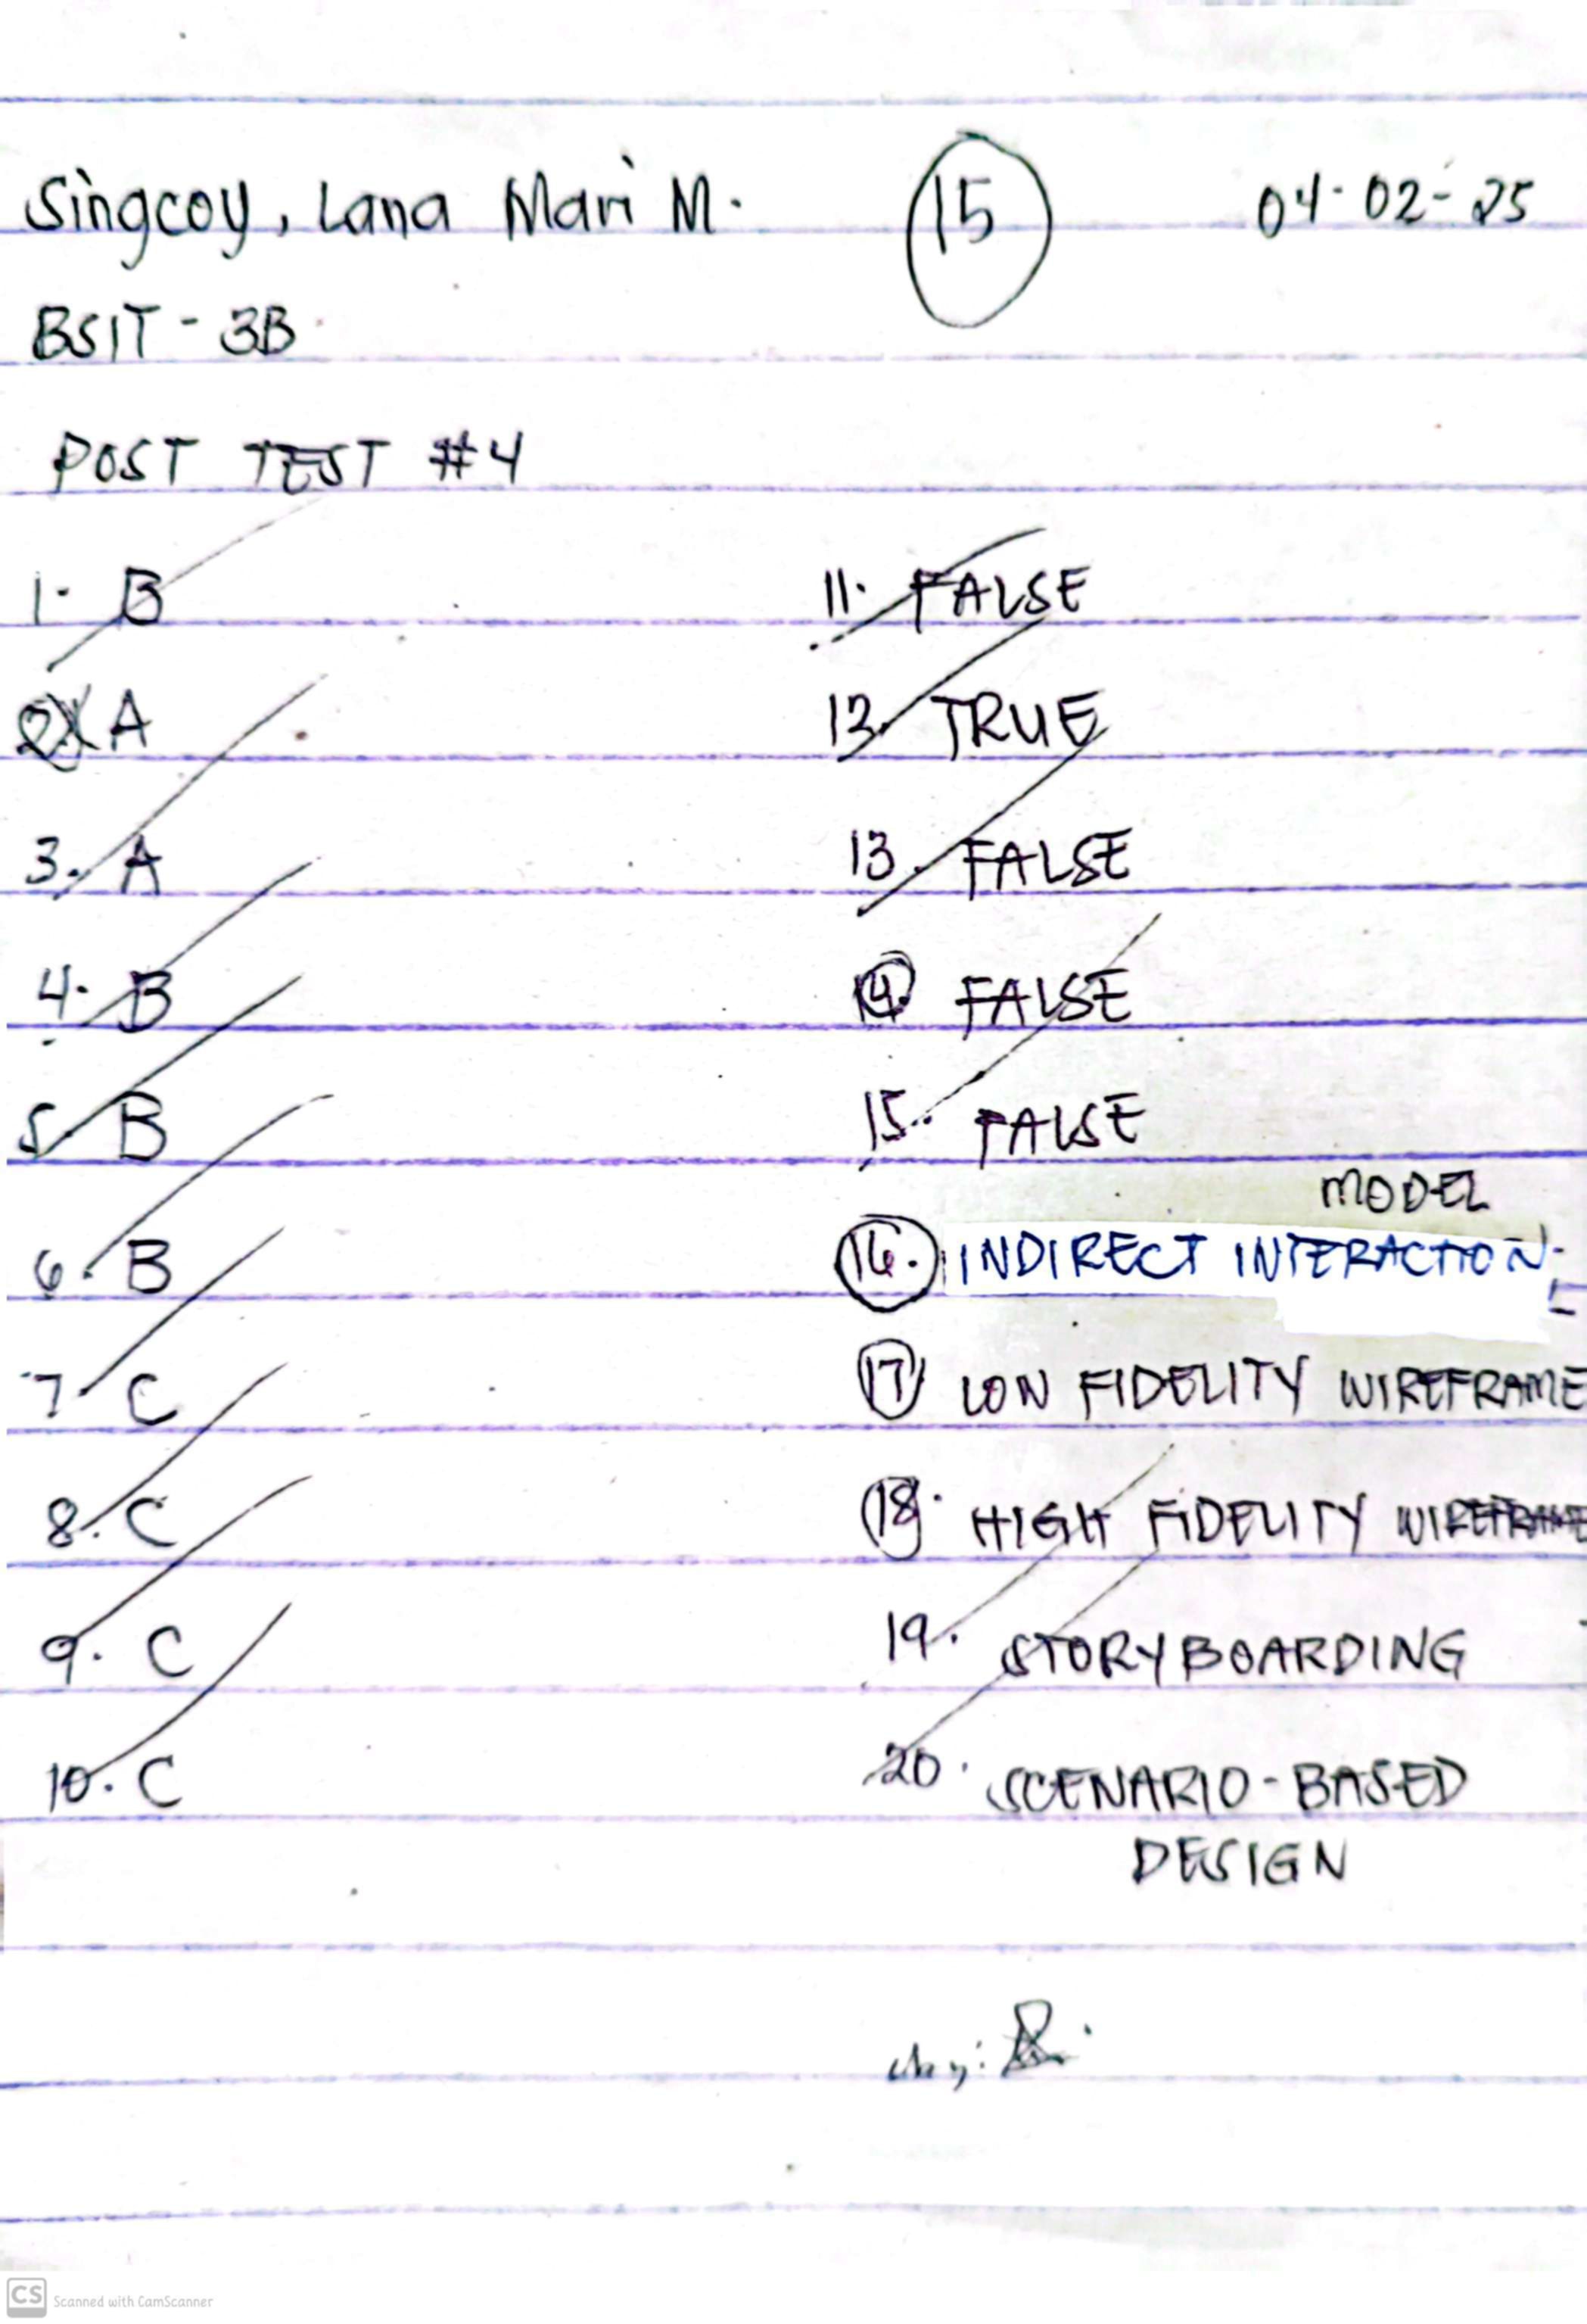 Singcoy, Lana Mari M. 15 04-02-25
BSIT - 3B
POST TEST #4
1. B
2. A
3. A
4. B
5. B
6. B
7. C
8. C
9. C
10. C
11. FALSE
12. TRUE
13. FALSE
14. FALSE
15. FALSE
MODEL
16. INDIRECT INTERACTION
17. LOW FIDELITY WIREFRAME
18. HIGH FIDELITY WIREFRAME
19. STORYBOARDING
20. SCENARIO-BASED
DESIGN
CS Scanned with CamScanner